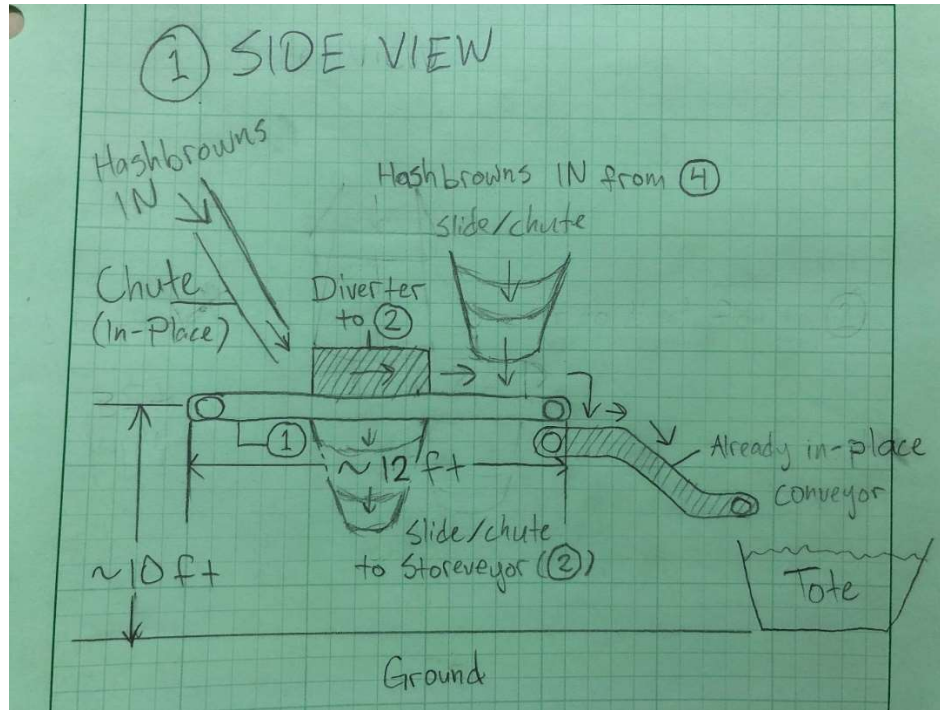 ① SIDE VIEW
Hashbrowns
IN
Hashbrowns IN from ④
slide/chute
Chute
(In-Place)
Diverter
to ②
①
~12 ft
Already in-place
conveyor
slide/chute
to Storeveyor (②)
~10 ft
Tote
Ground